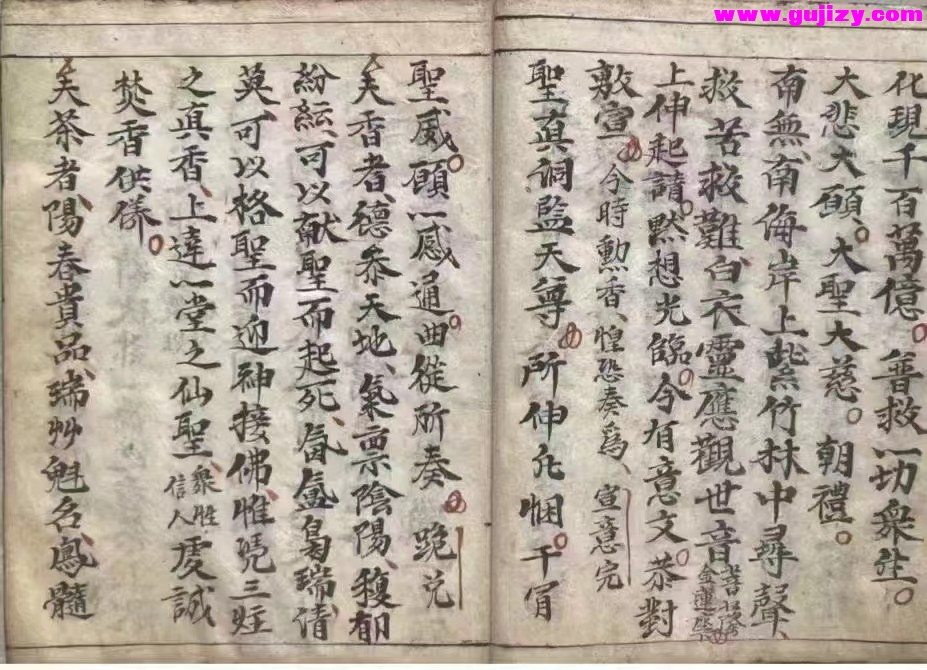 www.gujizy.com
化現千百萬億。普救一切衆生。
大悲大願。大聖大慈。朝禮。
南無南海岸上紫竹林中尋聲
救苦救難白衣靈應觀世音菩薩金蓮座下
上伸起請。黙想光臨。今有意文。恭對
敷宣 今時勲香、惶恐奏爲、宣意完
聖真洞監天尊 所伸凡悃。干冐
聖威。願一感通。曲從所奏 跪兑
夫香者、德叅天地、氣禀陰陽、馥郁
紛紜、可以献聖而起死、氤氲鳥瑞倩
英、可以格聖而迎神接佛、惟凴三炷
之真香、上達一堂之仙聖、衆姓信人虔誠
焚香供养。
夫茶者、陽春貴品、瑞艸魁名、鳳髓